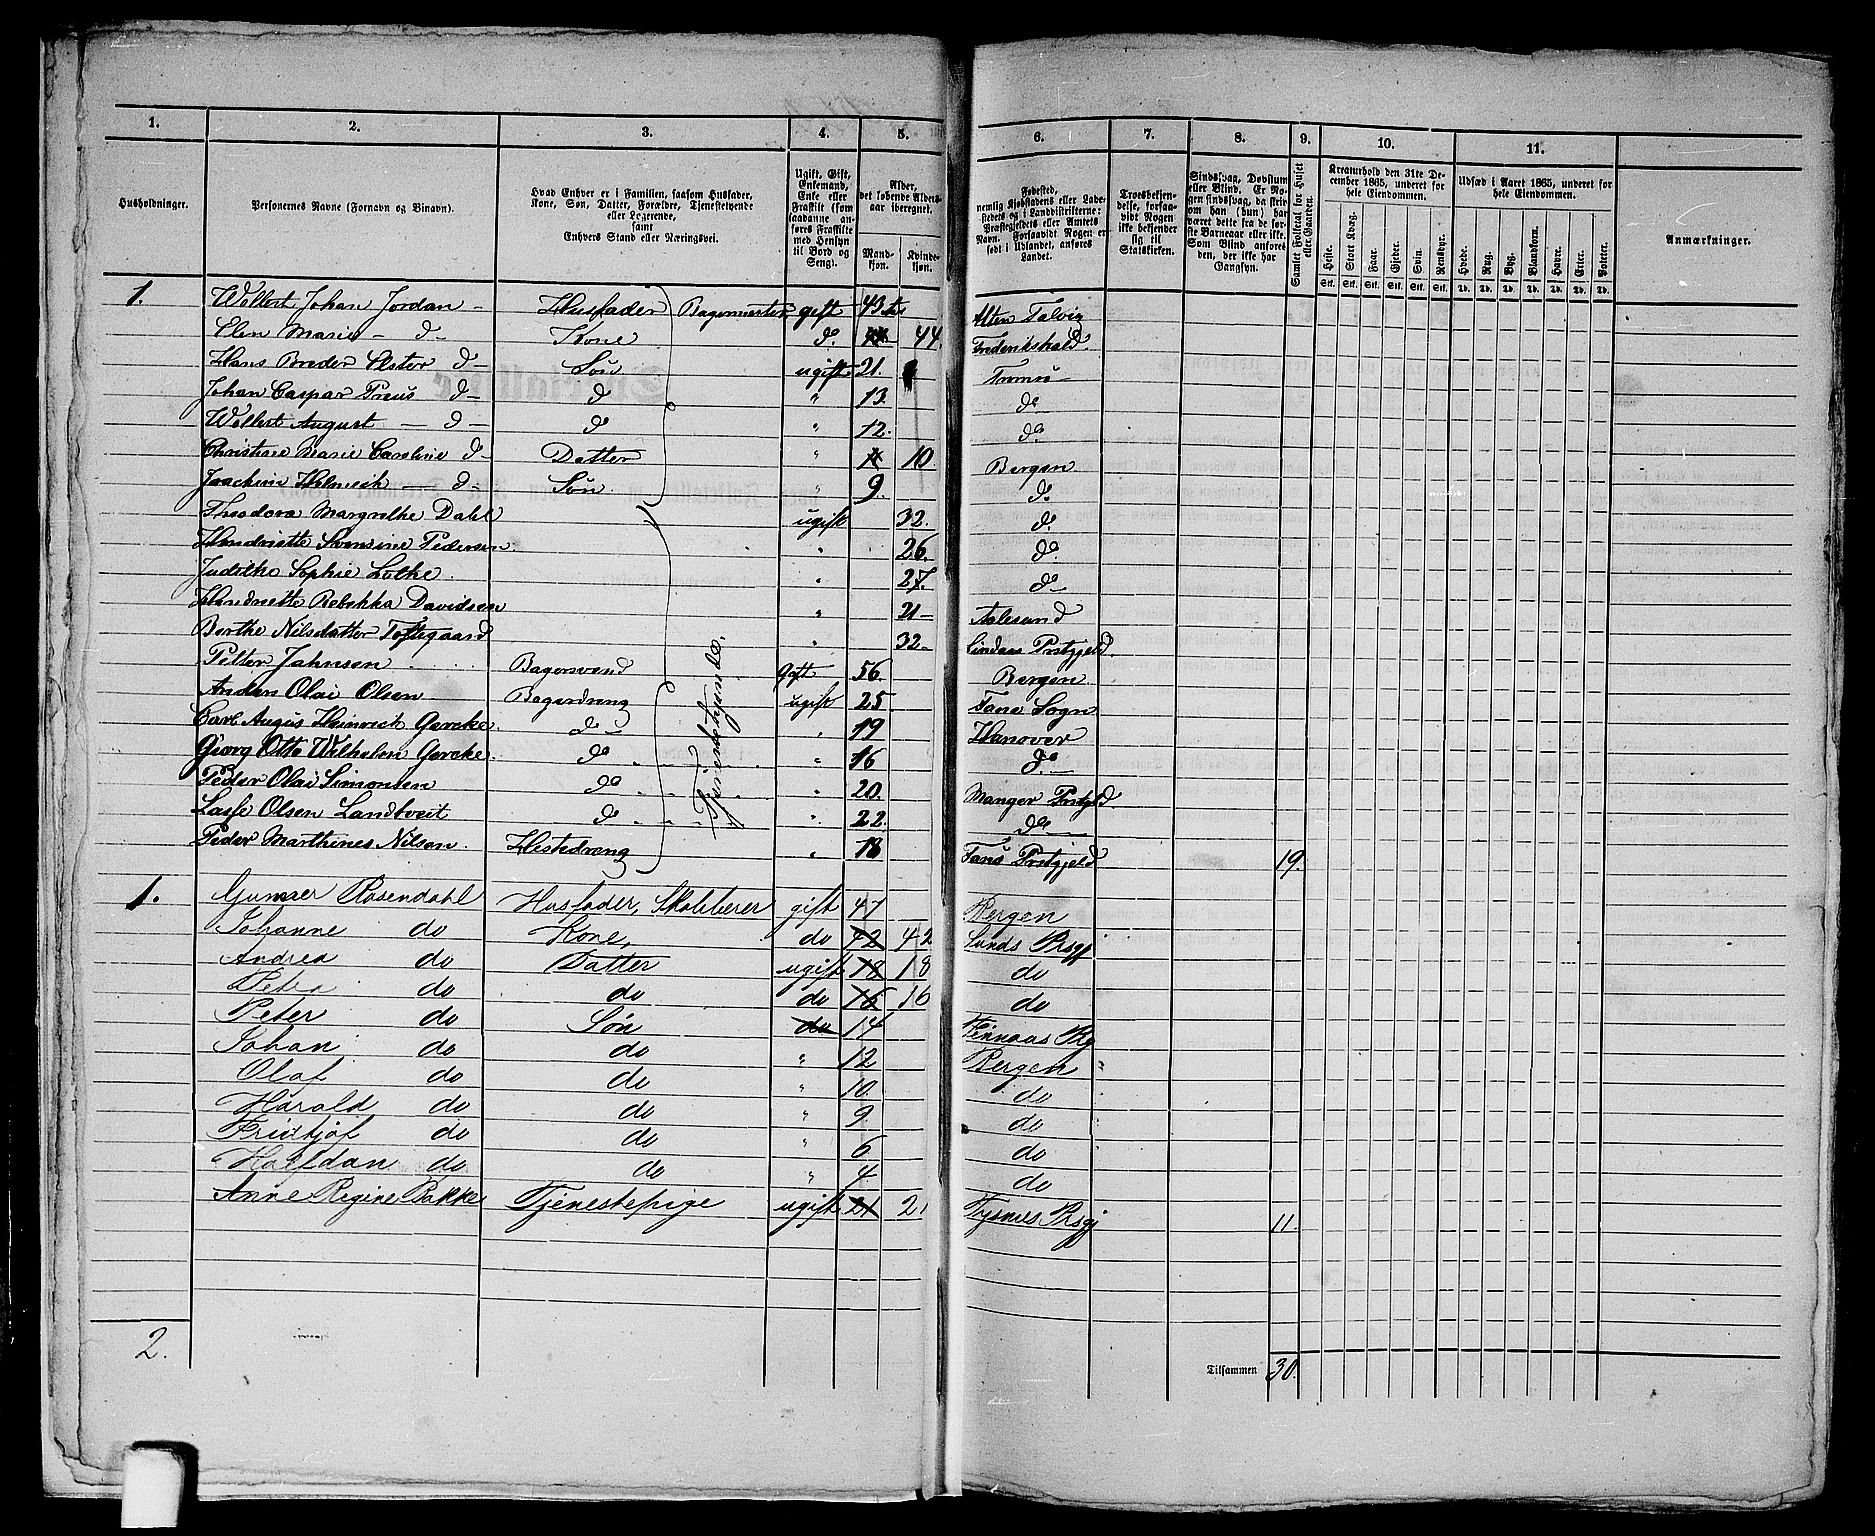 1. 2. 3. 4. 5. 6. 7. 8. 9. 10. 11.
Husholdninger.
Personernes Navne (Fornavn og Binavn).
Hvad Enhver er i Familien, saasom Husfader, Kone, Søn, Datter, Forældre, Tjenestetyende eller Logerende, samt Enhvers Stand eller Næringsvei.
Ugift, Gift, Enkemand, Enke eller Fraskilt (som saadanne anføres Fraskilte med Hensyn til Bord og Seng).
Alder, det løbende Aldersaar iberegnet.
Mandkjøn. Kvindekjøn.
Fødested, nemlig Kjøbstadens eller Ladestedets og i Landdistrikterne: Præstegjeldets eller Amtets Navn. Forsaavidt Nogen er født i Udlandet, anføres Landet.
Troesbekjendelse, forsaavidt Nogen ikke bekjender sig til Statskirken.
Sindssvag, Døvstum eller Blind. Er Nogen sindssvag, da skrives om han (hun) har været dette fra de første Barneaar eller ikke. Som Blind anføres den, der ikke har Gangsyn.
Samlet Folketal for Huset eller Gaarden.
Kreaturhold den 31te December 1865, underet for hele Eiendommen.
Heste. Stort Kvæg. Faar. Gjeder. Svin. Rensdyr.
Stk. Stk. Stk. Stk. Stk. Stk.
Udsæd i Aaret 1865, underet for hele Eiendommen.
Hvede. Rug. Byg. Blandkorn. Havre. Erter. Poteter.
Td. Td. Td. Td. Td. Td. Td.
Anmærkninger.
1. Wollert Johan Jordan - Husfader Bagermester gift 43 Alten Talvig
Elen Marie - d - Kone d. 44. Frederikshald
Hans Breder Elster d - Søn ugift 21. Tromsø -
Johan Caspar Preus d - d " 13. do
Wollert August - d - d " 12. do.
Christine Marie Caroline d - Datter " 10 Bergen
Joachim Helmich - d - Søn. " 9. d.
Theodora Margrethe Dahl ugift 32. d.
Hendriette Svensine Pedersen. " 26. do.
Judithe Sophie Lothe. " 27. do
Hendriette Rebekka Davidsen " 21 - Aalesund
Berthe Nilsdatter Toftegaard " 32 - Lindaas Prstgjeld
Tjenestetyende.
Petter Jahnsen Bagersvend Gift 56. Bergen
Anders Olai Olsen Bagerdreng ugift 25 Fane Sogn
Carl Augus Heinrich Gercke. d - " 19 Hanover
Georg Otto Wilhelm Gercke. do " 16 d. -
Peder Olai Simonsen do " 20. Manger Prstgjld.
Lasse Olsen Landtveit d " 22. do -
Peder Marthines Nilsen. Hestedreng " 18 Fanø Prstgjeld 19.
1. Gunner Rosendahl Husfader, Skibbierer gift 47 Bergen
Johanne do Kone, do 42 42 Sunds Prsgj
Andrea do Datter ugift 18 18 do
Petra do do do 16 16 do
Peter do Søn do 14 Finnaas Prg
Johan do do " 12 Bergen
Olaf do do " 10. do
Harald do do " 9. do
Fridtjof do do " 6 do
Halfdan do do " 4 do
Anne Regine Bakke Tjenestepige ugift 21 21 Tysnes Prsgj 11
2.
Tilsammen 30.